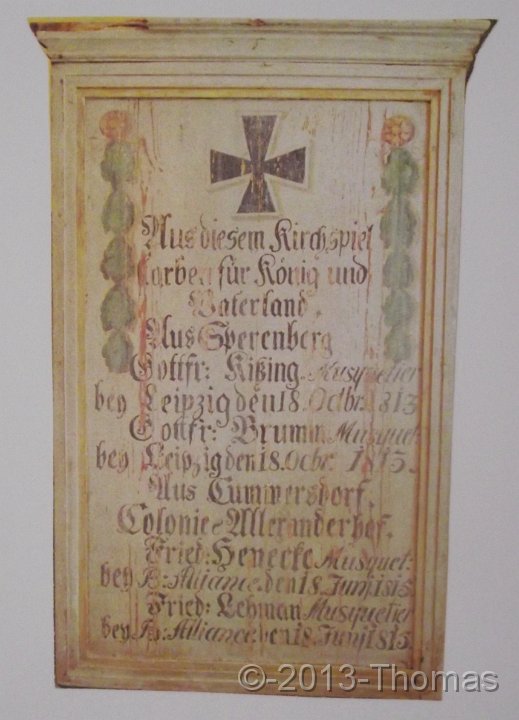 Aus diesem Kirchspiel
starben für König und
Vaterland.
Aus Sperenberg
Gottfr: Kißing. Musquetier
bey Leipzig den 18. Octbr. 1813
Gottfr: Brumm Musquet.
bey Leipzig den 18. Ocbr. 1813.
Aus Cummersdorf.
Colonie Allexanderhof.
Fried: Henecke Musquet:
bey B: Aliance. den 18. Junj 1815
Fried: Lehman Musquetier
bey B: Aliance. den 18. Junj 1815.
©-2013-Thomas